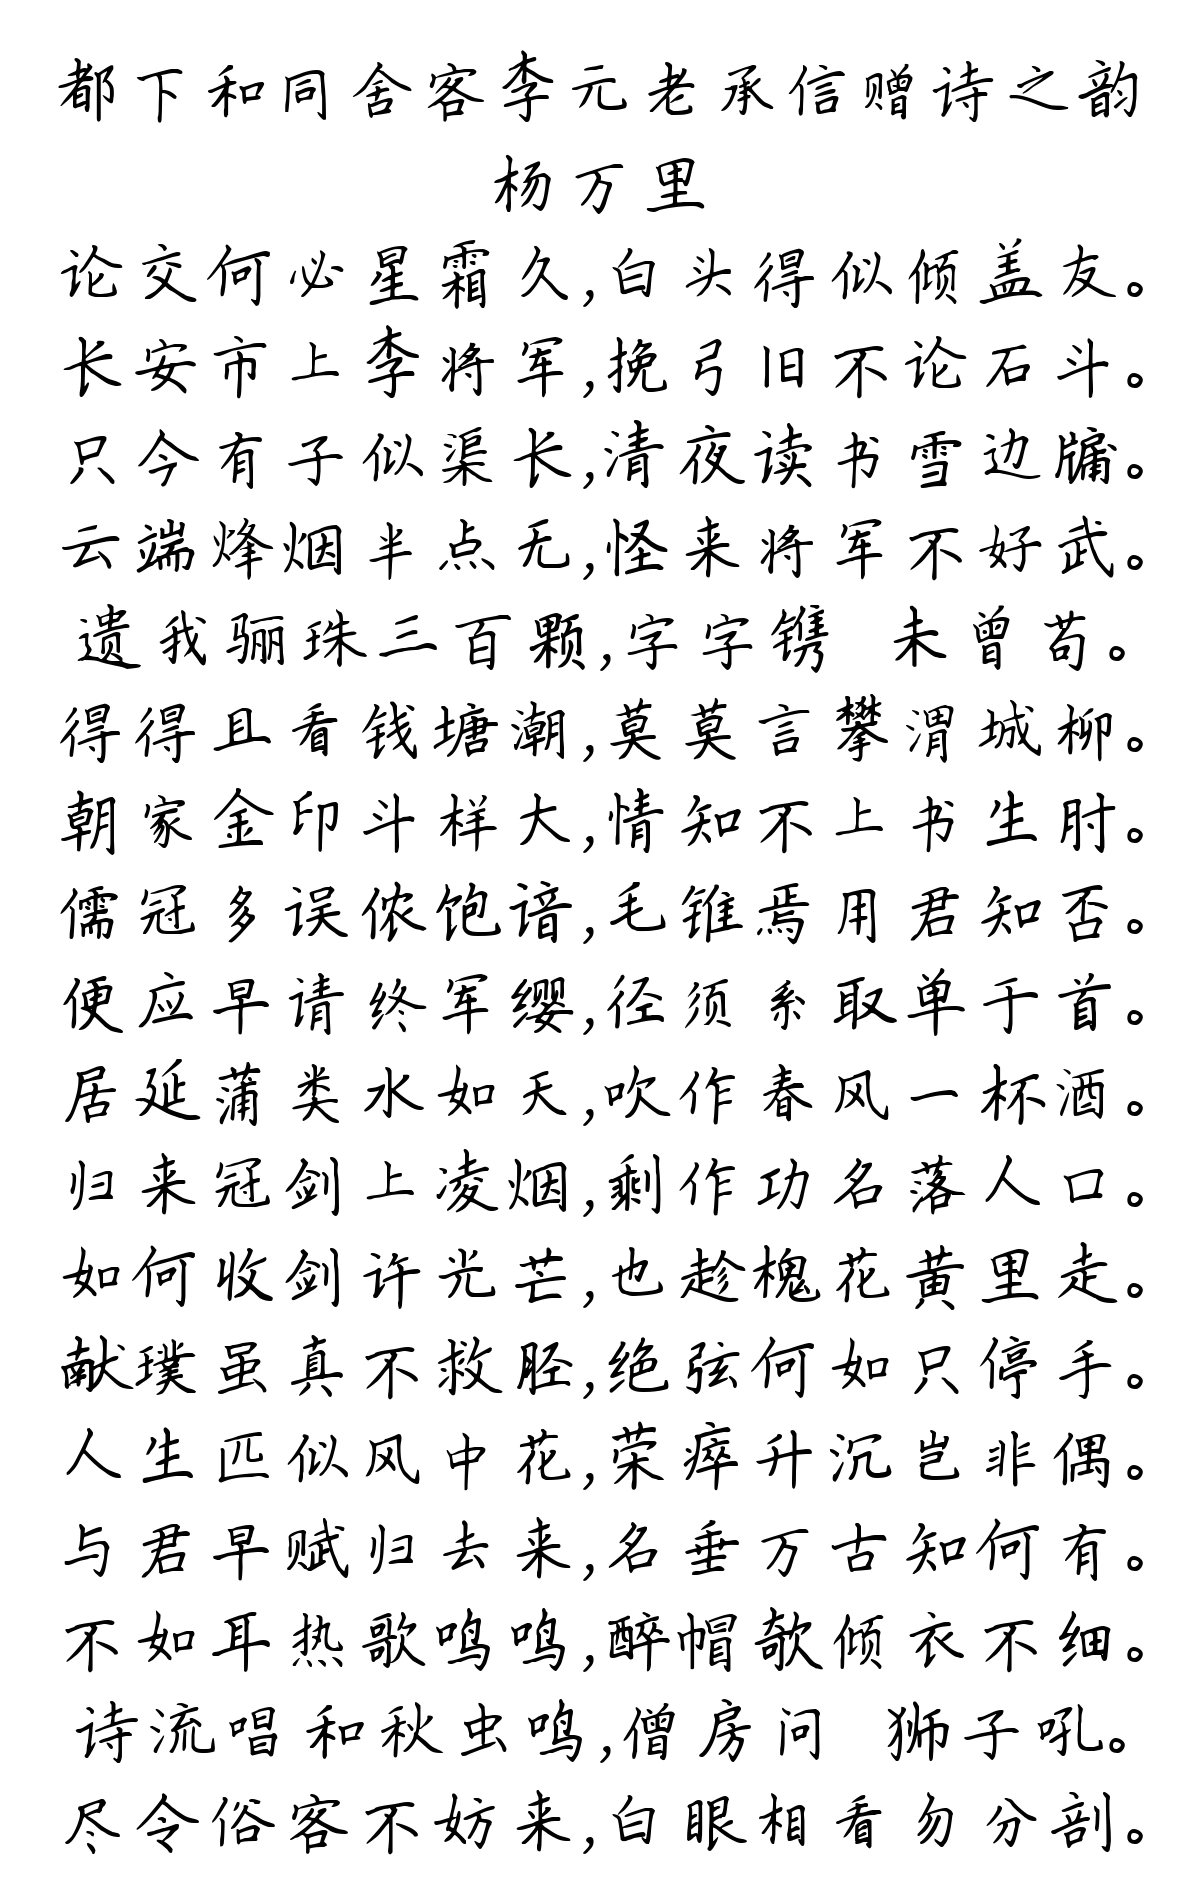 都下和同舍客李元老承信赠诗之韵
杨万里
论交何必星霜久,白头得似倾盖友。
长安市上李将军,挽弓旧不论石斗。
只今有子似渠长,清夜读书雪边牖。
云端烽烟半点无,怪来将军不好武。
遗我骊珠三百颗,字字镌 未曾苟。
得得且看钱塘潮,莫莫言攀渭城柳。
朝家金印斗样大,情知不上书生肘。
儒冠多误侬饱谙,毛锥焉用君知否。
便应早请终军缨,径须系取单于首。
居延蒲类水如天,吹作春风一杯酒。
归来冠剑上凌烟,剩作功名落人口。
如何收剑许光芒,也趁槐花黄里走。
献璞虽真不救胫,绝弦何如只停手。
人生匹似风中花,荣瘁升沉岂非偶。
与君早赋归去来,名垂万古知何有。
不如耳热歌鸣鸣,醉帽欹倾衣不细。
诗流唱和秋虫鸣,僧房问 狮子吼。
尽令俗客不妨来,白眼相看勿分剖。